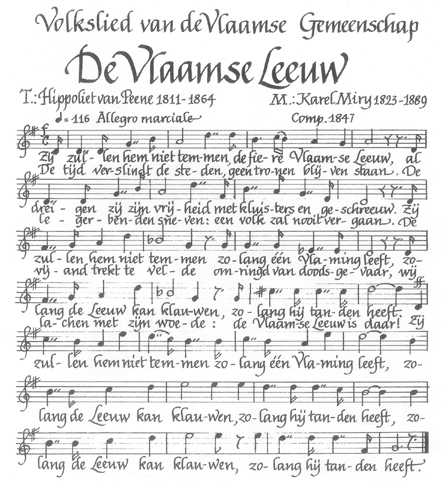 Volkslied van de Vlaamse Gemeenschap
De Vlaamse Leeuw
T.: Hippoliet van Peene 1811-1864 M.: Karel Miry 1823-1889
♩= 116 Allegro marciale Comp. 1847
Zij zul-len hem niet tem-men, de fie-re Vlaam-se Leeuw, al
De tijd ver-slindt de ste-den, geen tro-nen blij-ven staan. De
drei-gen zij zijn vrij-heid met kluis-ters en ge-schreeuw. Zij
le-ger-ben-den sne-ven: een volk zal nooit ver-gaan. De
zul-len hem niet tem-men zo-lang één Vla-ming leeft, zo-
vij-and trekt te vel-de om-ringd van doods-ge-vaar, wij
lang de Leeuw kan klau-wen, zo-lang hij tan-den heeft.
la-chen met zijn woe-de: de Vlaam-se Leeuw is daar! Zij
zul-len hem niet tem-men zo-lang één Vla-ming leeft, zo-
lang de Leeuw kan klau-wen, zo-lang hij tan-den heeft, zo-
lang de Leeuw kan klau-wen, zo-lang hij tan-den heeft.